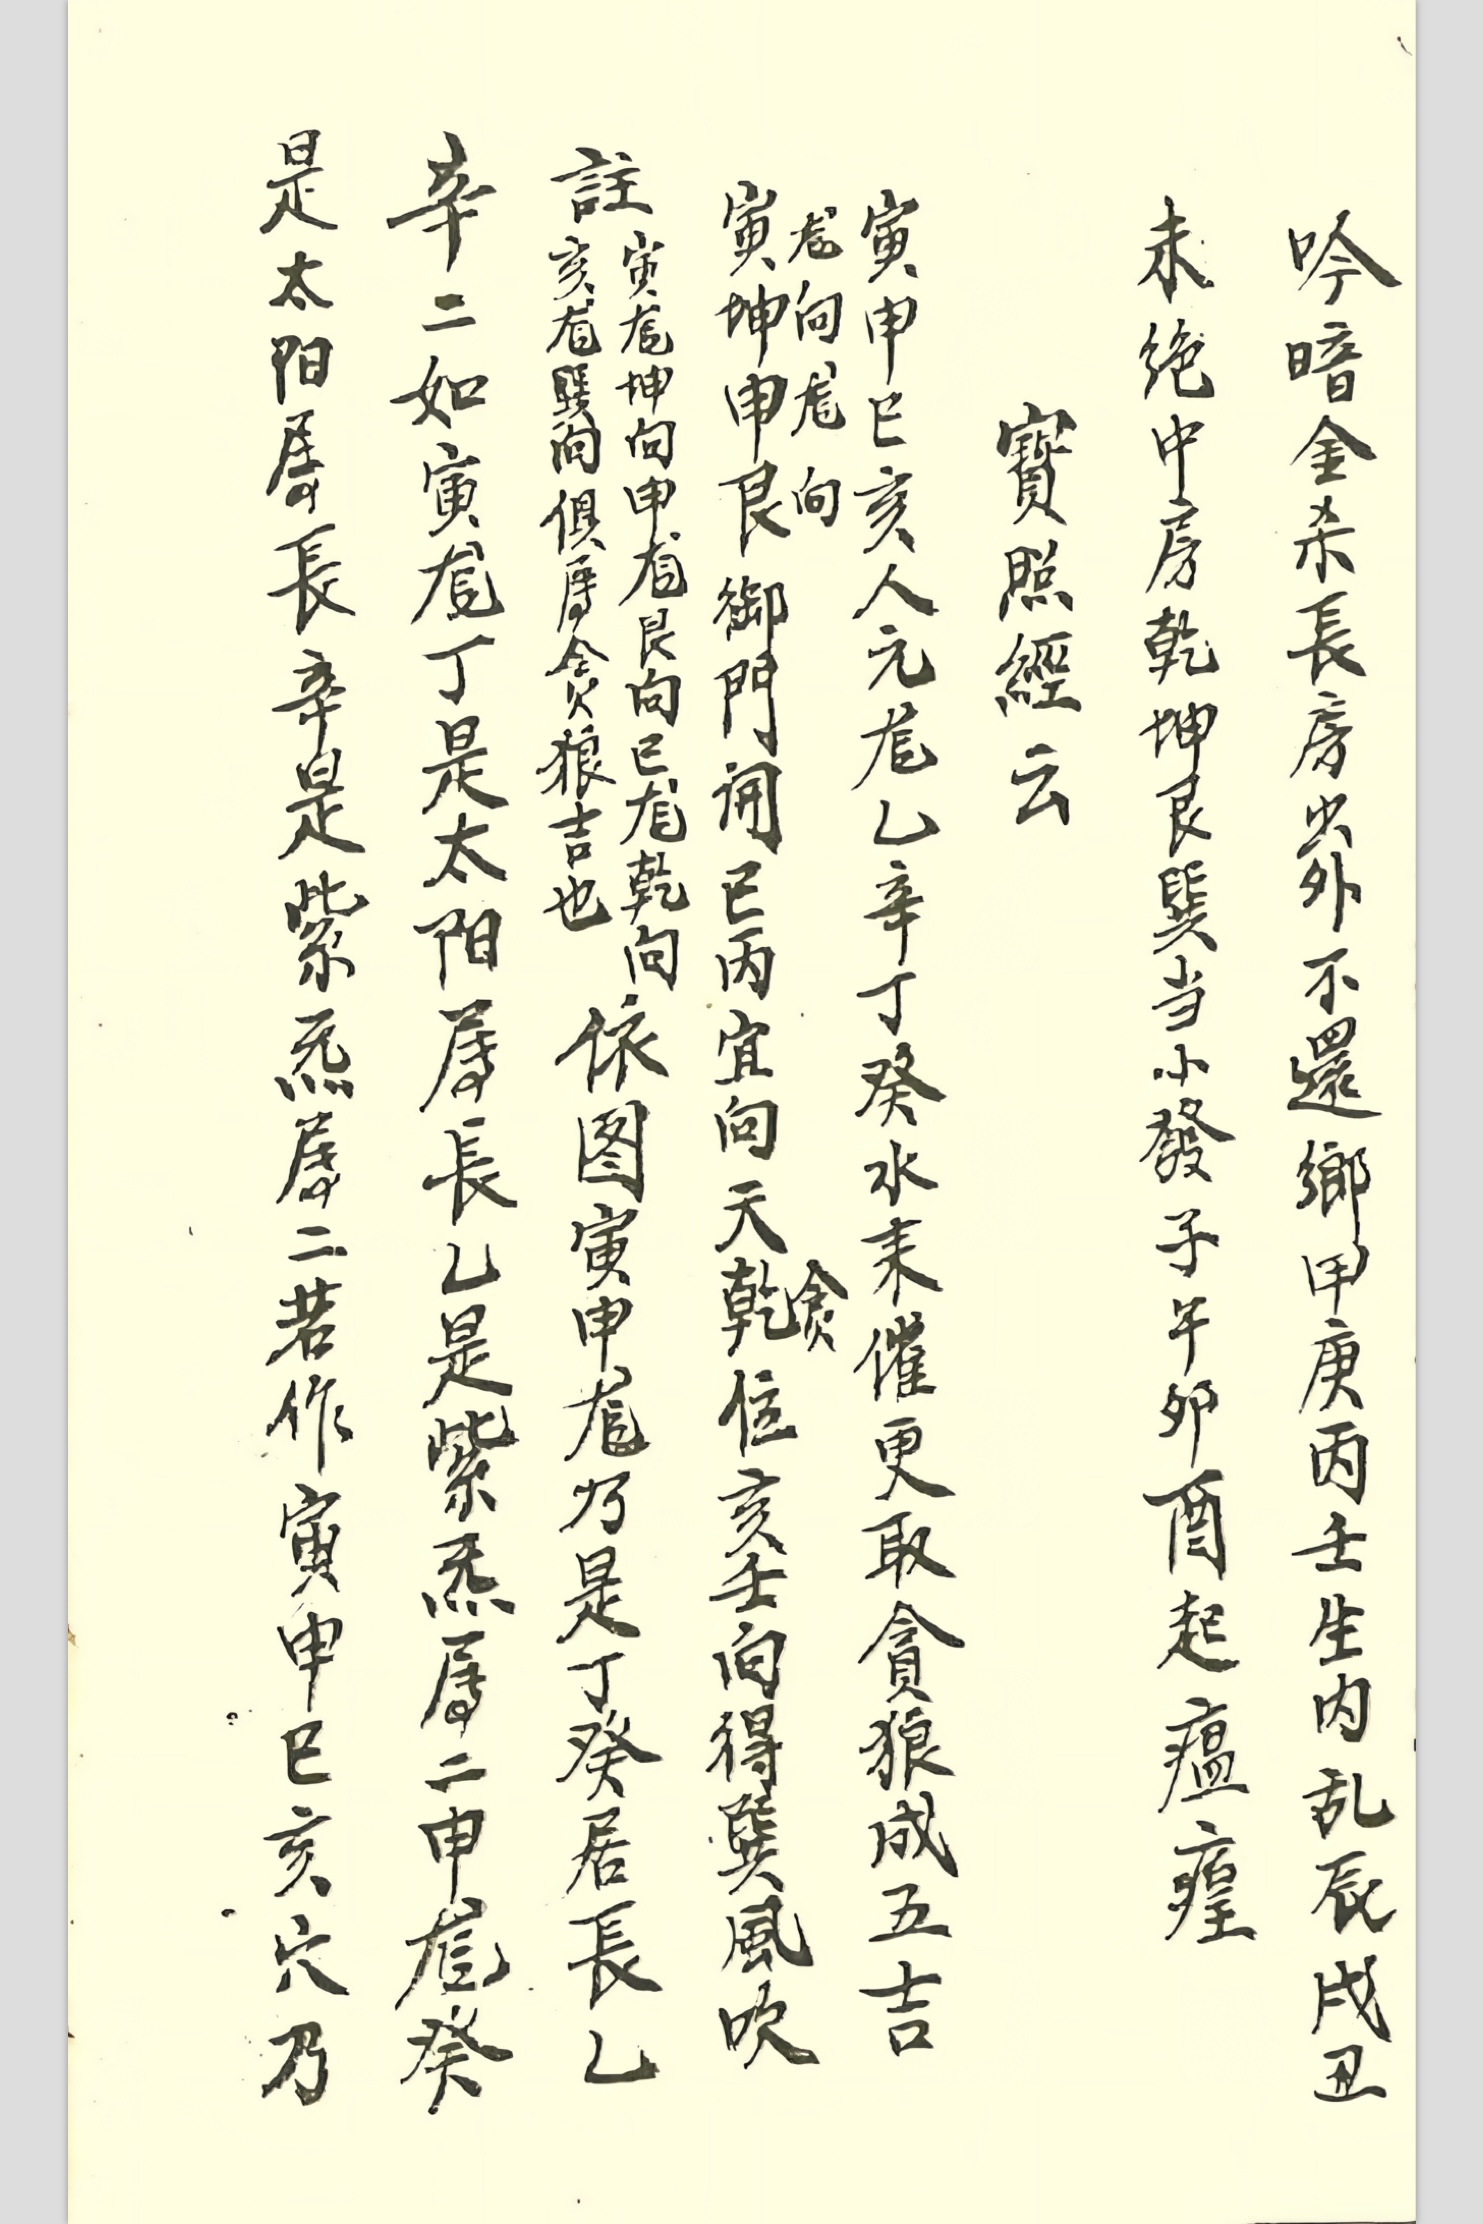 吟暗金杀長房出外不還鄉甲庚丙壬生内乱辰戌丑
未絶中房乾坤艮巽当小發子午卯酉起瘟𤸶
寶照經云
寅申巳亥人元龙乙辛丁癸水来催更取貪狼成五吉
龙向龙向
寅坤申艮御門開巳丙宜向天乾位亥壬向得巽風吹
貪
註
寅龙坤向申龙艮向巳龙乾向
亥龙巽向俱属貪狼吉也
依图寅申龙乃是丁癸居長乙
辛二如寅龙丁是太阳属長乙是紫炁属二申龙癸
是太阳属長辛是紫炁属二若作寅申巳亥穴乃